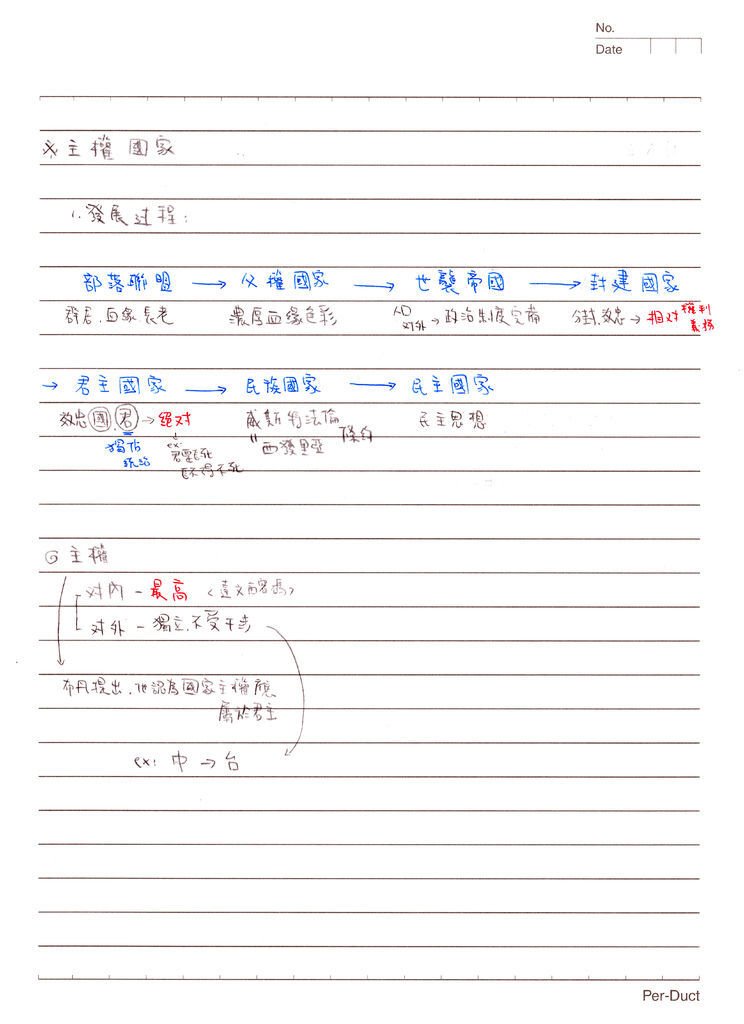 No.
Date
※主權國家
1. 發展过程:
部落聯盟 → 父權國家 → 世襲帝國 → 封建國家
群居.血緣長老 濃厚血緣色彩 人口 对外→政治制度完備 分封.效忠→相对權利義務
→ 君主國家 → 民族國家 → 民主國家
效忠國.君→絕对 威斯特法倫 民主思想
獨佔統治 ex: 君要臣死 臣不得不死 "西發里亞 條約
◎主權
对內-最高
对外-獨立.不受干涉
布丹提出.他認為國家主權應
屬於君主
ex: 中→台
Per-Duct